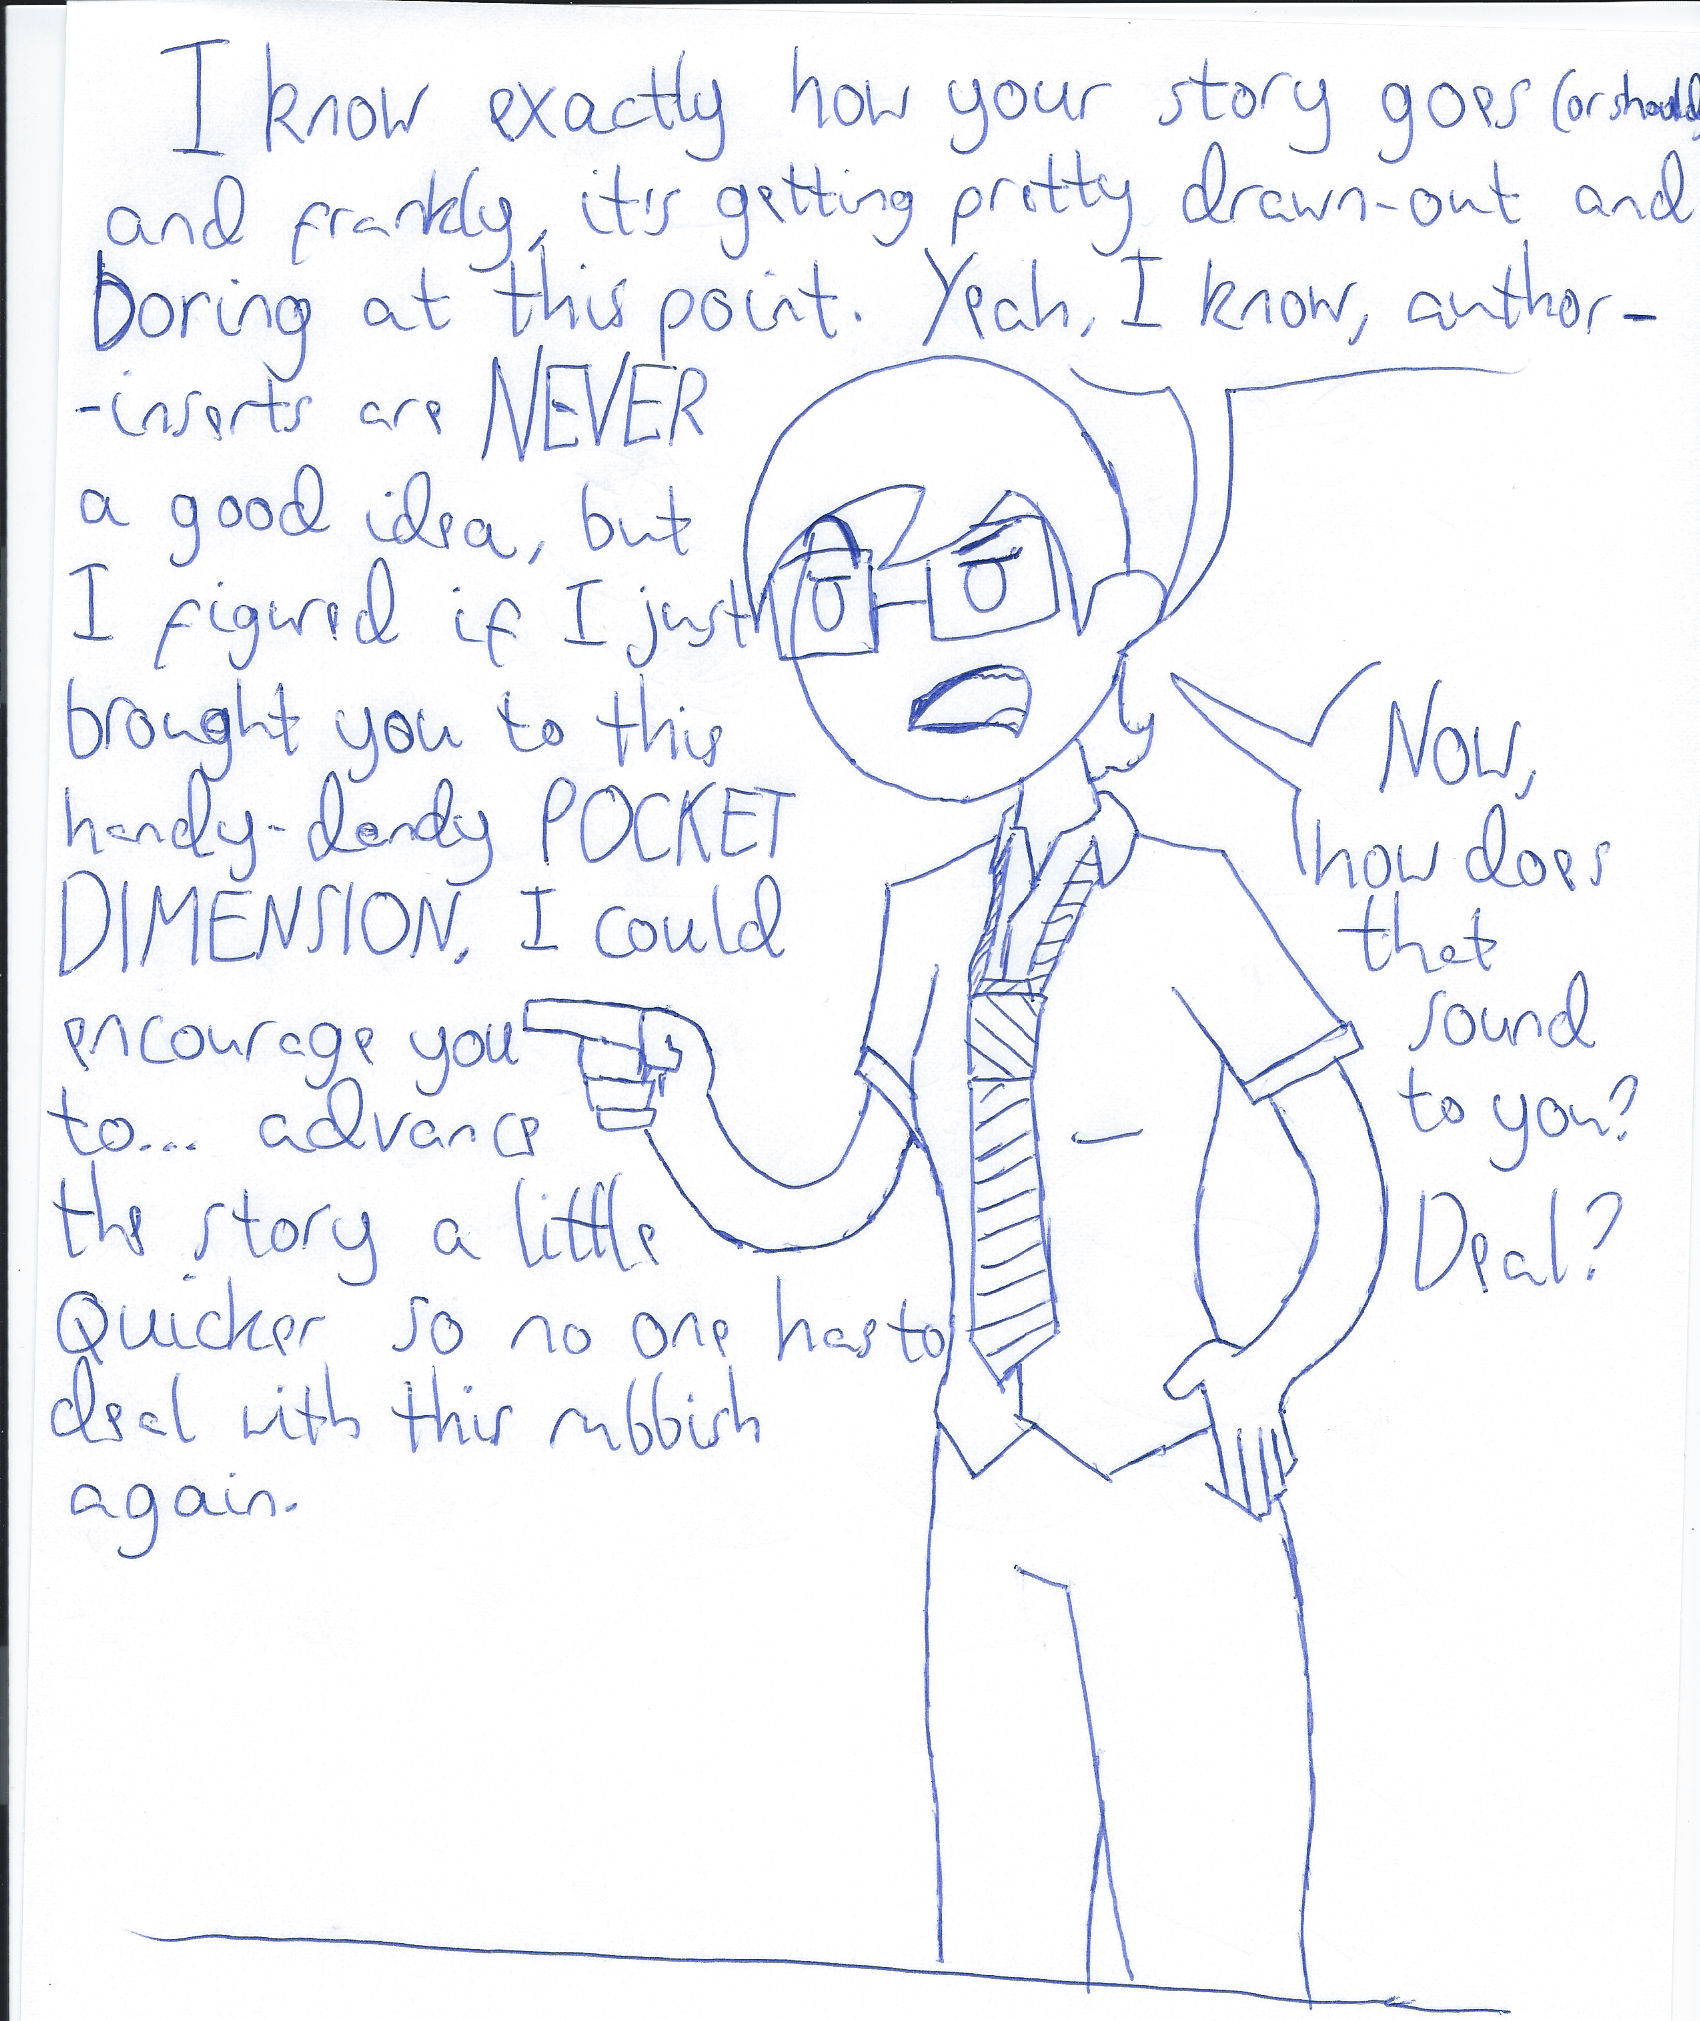 I know exactly how your story goes (or should)
and frankly, it's getting pretty drawn-out and
boring at this point. Yeah, I know, author-
-inserts are NEVER
a good idea, but
I figured if I just
brought you to this
handy-dandy POCKET
DIMENSION, I could
encourage you
to... advance
the story a little
Quicker so no one has to
deal with this rubbish
again.
Now,
how does
that
sound
to you?
Deal?